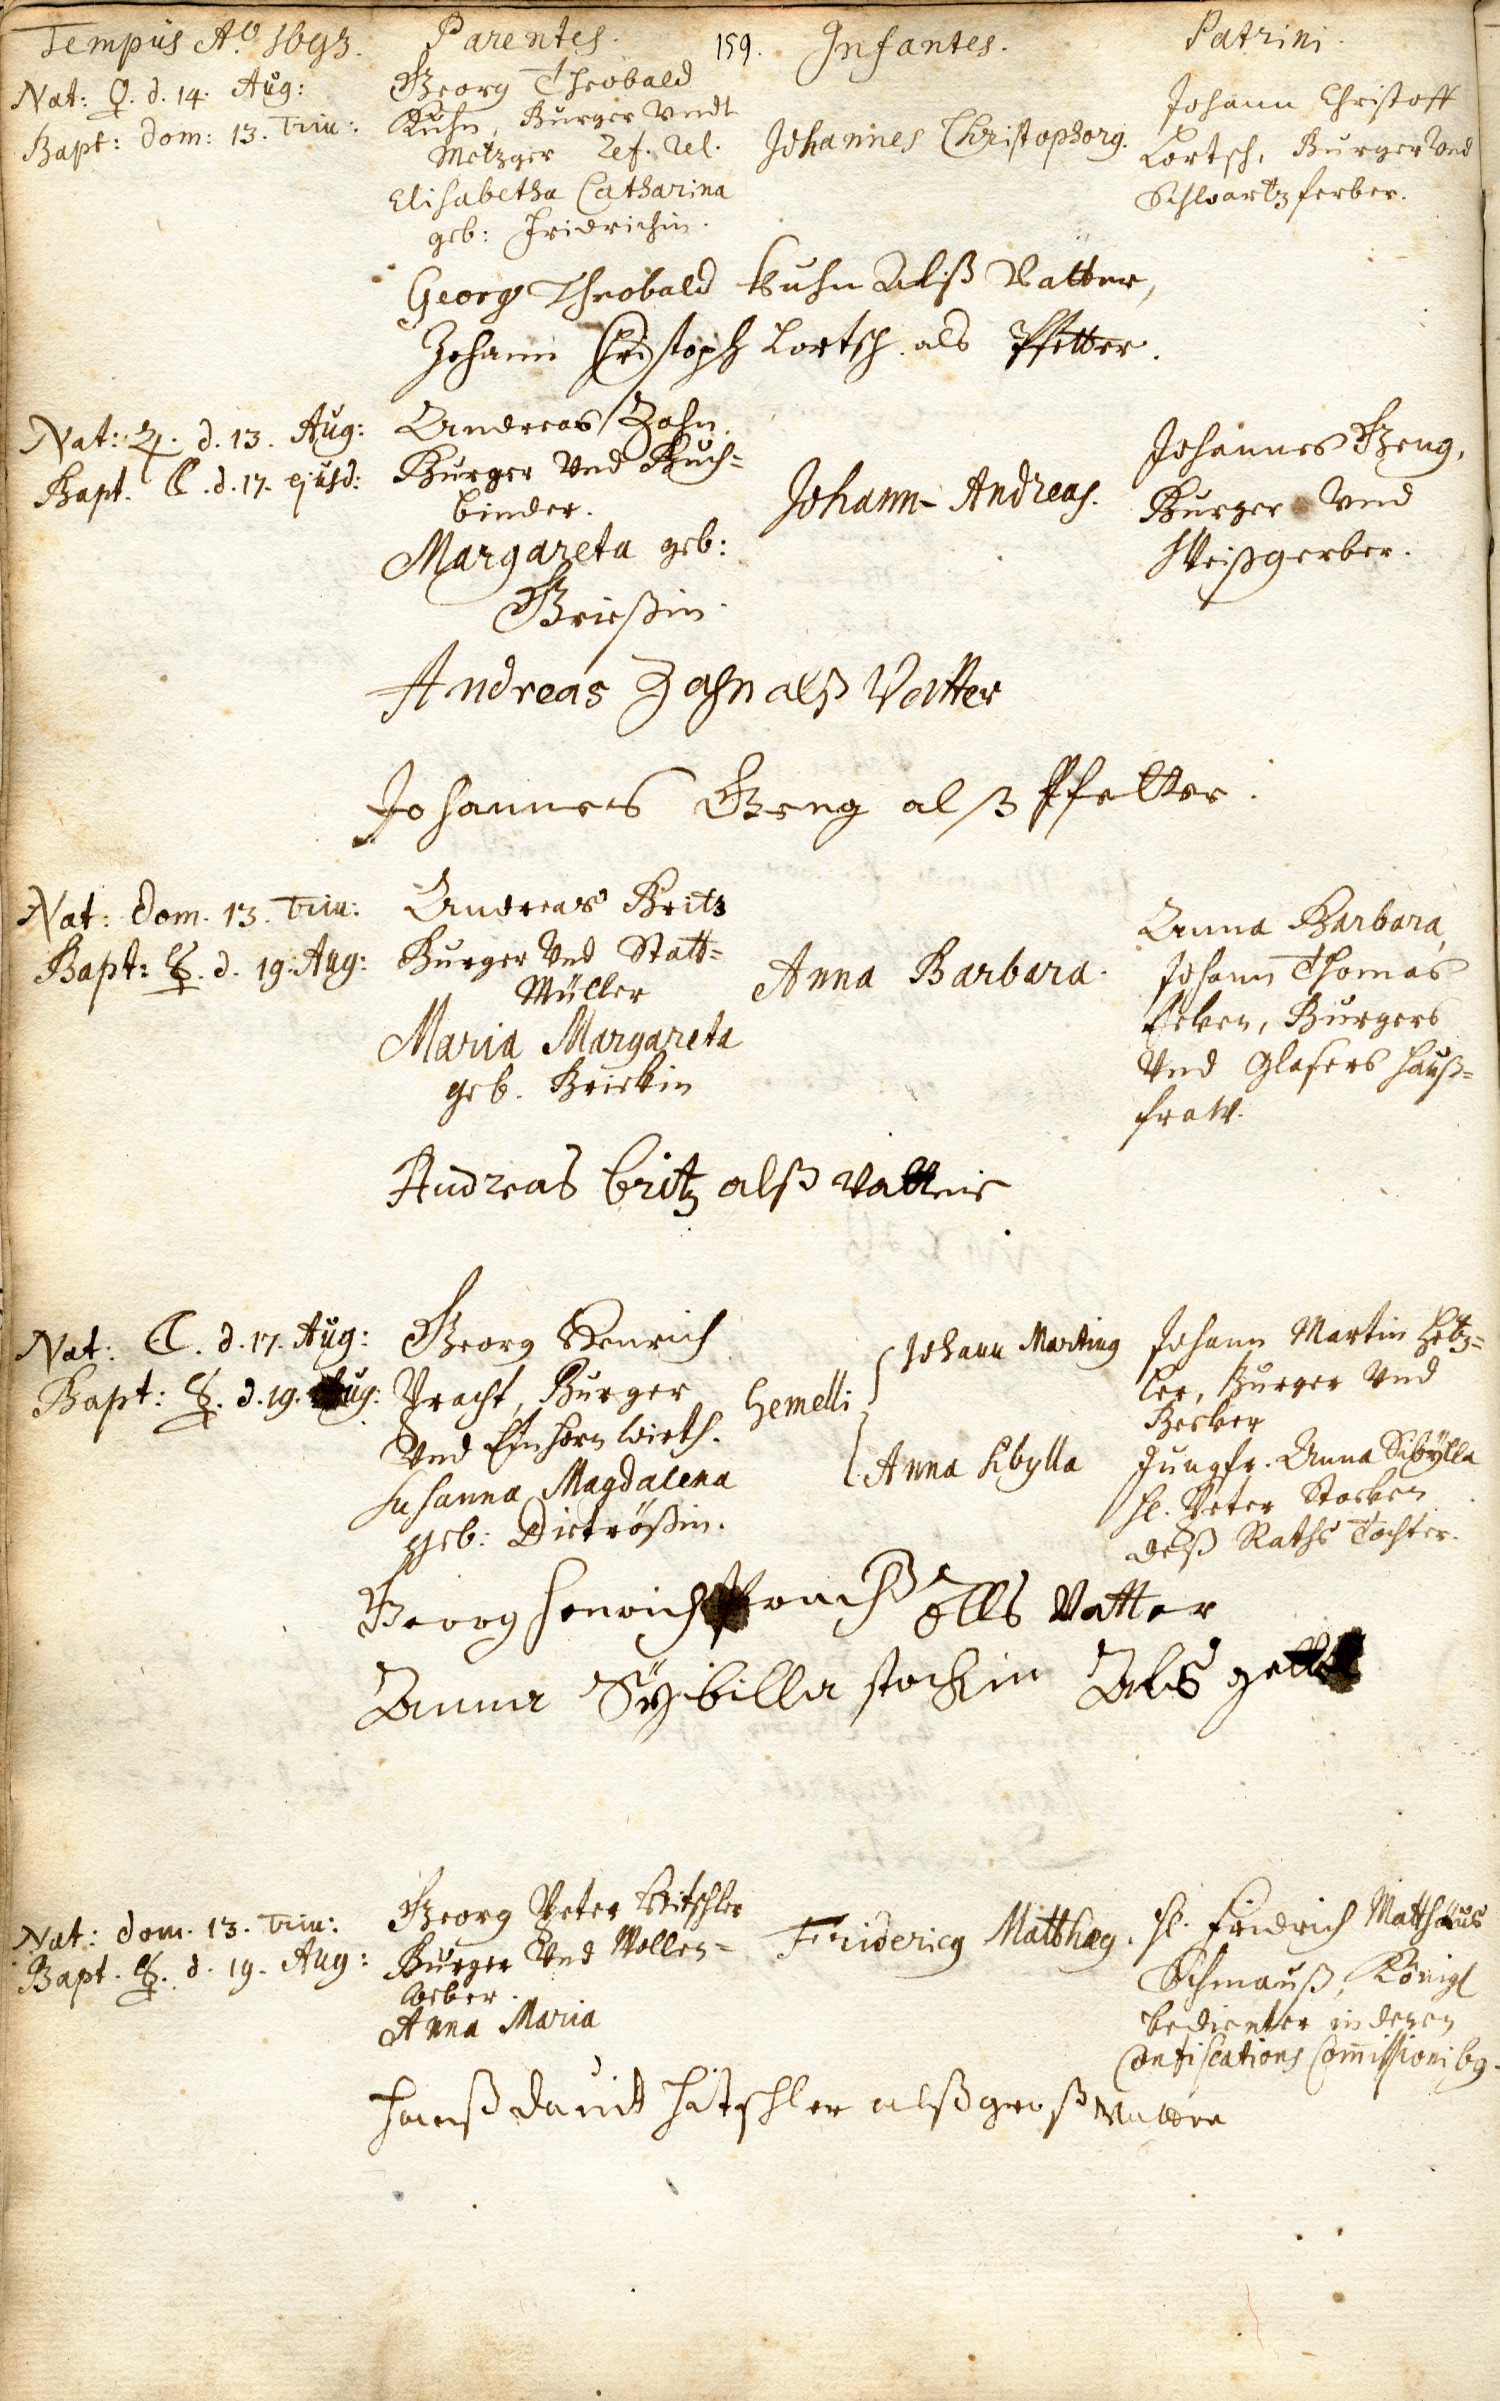 Tempus Aº 1693.
Parentes.
159.
Infantes.
Patrini.
Nat: ♀. d. 14. Aug:
Bapt: dom: 13. Trin:
Georg Theobald
Kuhn, Burger Vndt
Metzger ref. rel.
Elisabetha Catharina
geb: Fridrichin.
Johannes Christophorg.
Johann Christoff
Lortsch, Burger Vnd
Schwartzferber.
Georg Theobald Kuhn Alß Vatter,
Johann Christoph Lortsch als Pfetter.
Nat: ♃. d. 13. Aug:
Bapt. ☾. d. 17. ejusd:
Andreas Zahn,
Burger Vnd Buch=
binder.
Margareta geb:
Grießin.
Johann- Andreas.
Johannes Geng,
Burger Vnd
Weißgerber.
Andreas Zahn alß Vatter
Johannes Geng alß Pfetter.
Nat: dom. 13. Trin:
Bapt: ☿. d. 19. Aug:
Andreas Britz
Burger Vnd Statt=
Müller
Maria Margareta
geb. Brickin
Anna Barbara.
Anna Barbara,
Johann Thomas
Burgers
Vnd Glasers Hauß=
fraw.
Andreas britz alß Vatter
Nat: ☾. d. 17. Aug:
Bapt: ☿. d. 19. Aug:
Georg Henrich
Pracht, Burger
Vnd Einhorn Wirth.
Susanna Magdalena
geb: Dietrößin.
Gemelli
Johann Marting
Anna Sibylla
Johann Martin Hetz=
ler, Burger Vnd
Becker
Jungfr. Anna Sibÿlla
H. Peter Stocken
deß Raths Tochter.
Georg Henrich Vatter
Anna Sÿbilla stockin Als
Nat: dom. 13. Trin:
Bapt. ☿. d. 19. Aug:
Georg Peter Hitschler
Burger Vnd Wollen=
weber.
Anna Maria
Fridericg Matthæg.
H. Fridrich Matthäus
Schmauß, Königl
bedienter in denen
Confiscations Com̄issionibg.
Hanß Davidt Hitschler alß groß Vatter